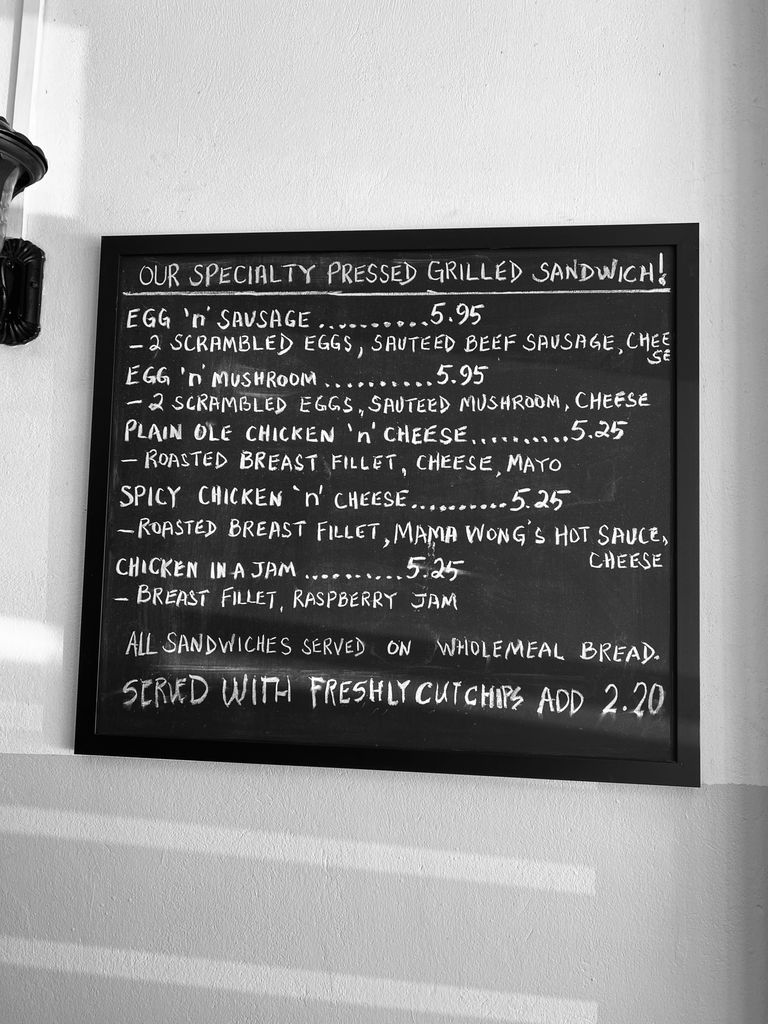 OUR SPECIALTY PRESSED GRILLED SANDWICH!
EGG 'n' SAUSAGE ..........5.95
- 2 SCRAMBLED EGGS, SAUTEED BEEF SAUSAGE, CHEE
SE
EGG 'n' MUSHROOM ..........5.95
- 2 SCRAMBLED EGGS, SAUTEED MUSHROOM, CHEESE
PLAIN OLE CHICKEN 'n' CHEESE..........5.25
- ROASTED BREAST FILLET, CHEESE, MAYO
SPICY CHICKEN 'n' CHEESE..........5.25
- ROASTED BREAST FILLET, MAMA WONG'S HOT SAUCE,
CHEESE
CHICKEN IN A JAM ..........5.25
- BREAST FILLET, RASPBERRY JAM
ALL SANDWICHES SERVED ON WHOLEMEAL BREAD.
SERVED WITH FRESHLY CUT CHIPS ADD 2.20